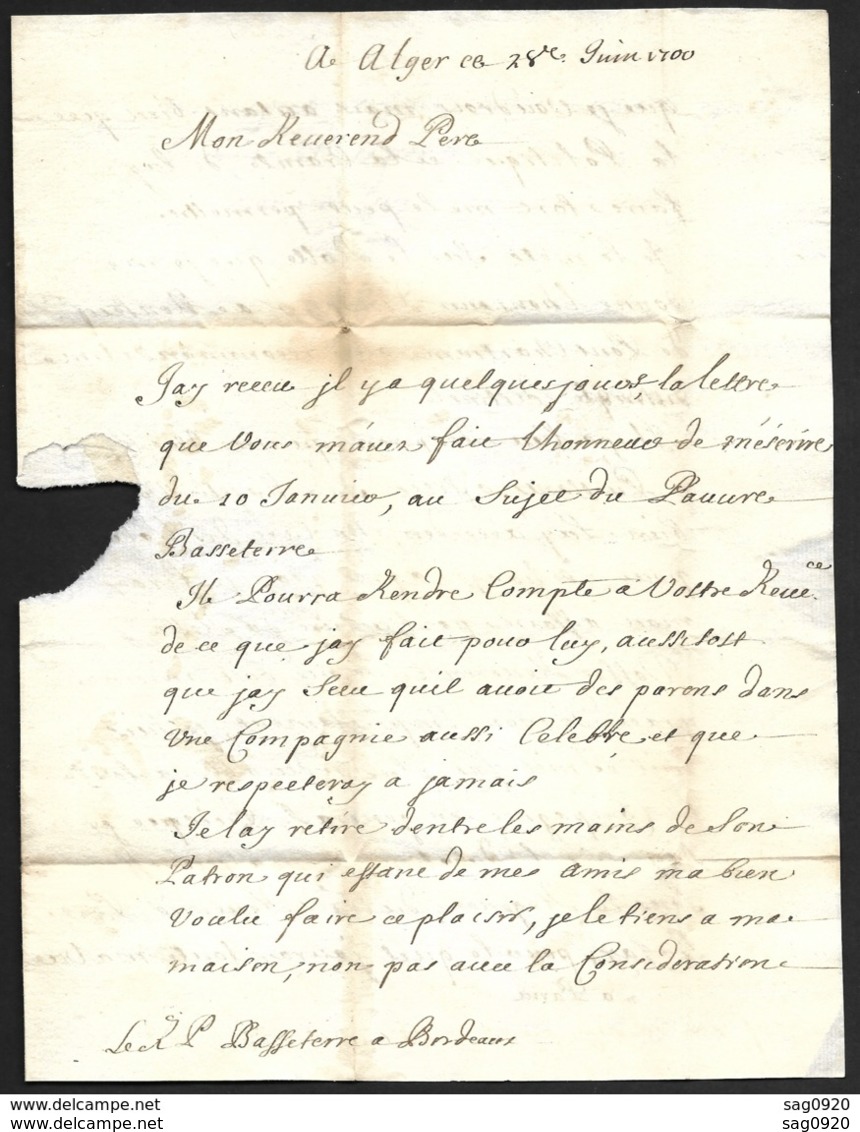 A Alger ce 28e. Juin 1700
Mon Reuerend Pere
Jay receu jl ya quelques jours, la lettre
que Vous m'auez fait lhonneur de m'éscrire
du 10 Januier, au Sujet du Pauure
Basseterre
Jl Pourra Rendre Compte a Vostre Reue.ce
de ce que jay fait pour luy, aussi tost
que jay Sceu quil auoit des parens dans
Vne Compagnie aussi Celebre, et que
je respecteray a jamais
Je lay retiré dentre les mains de Son
Patron qui estant de mes amis ma bien
Voulu faire ce plaisir, je le tiens a ma
maison, non pas auec la Consideration
Le R P Basseterre a Bordeaux
sag0920
sag0920